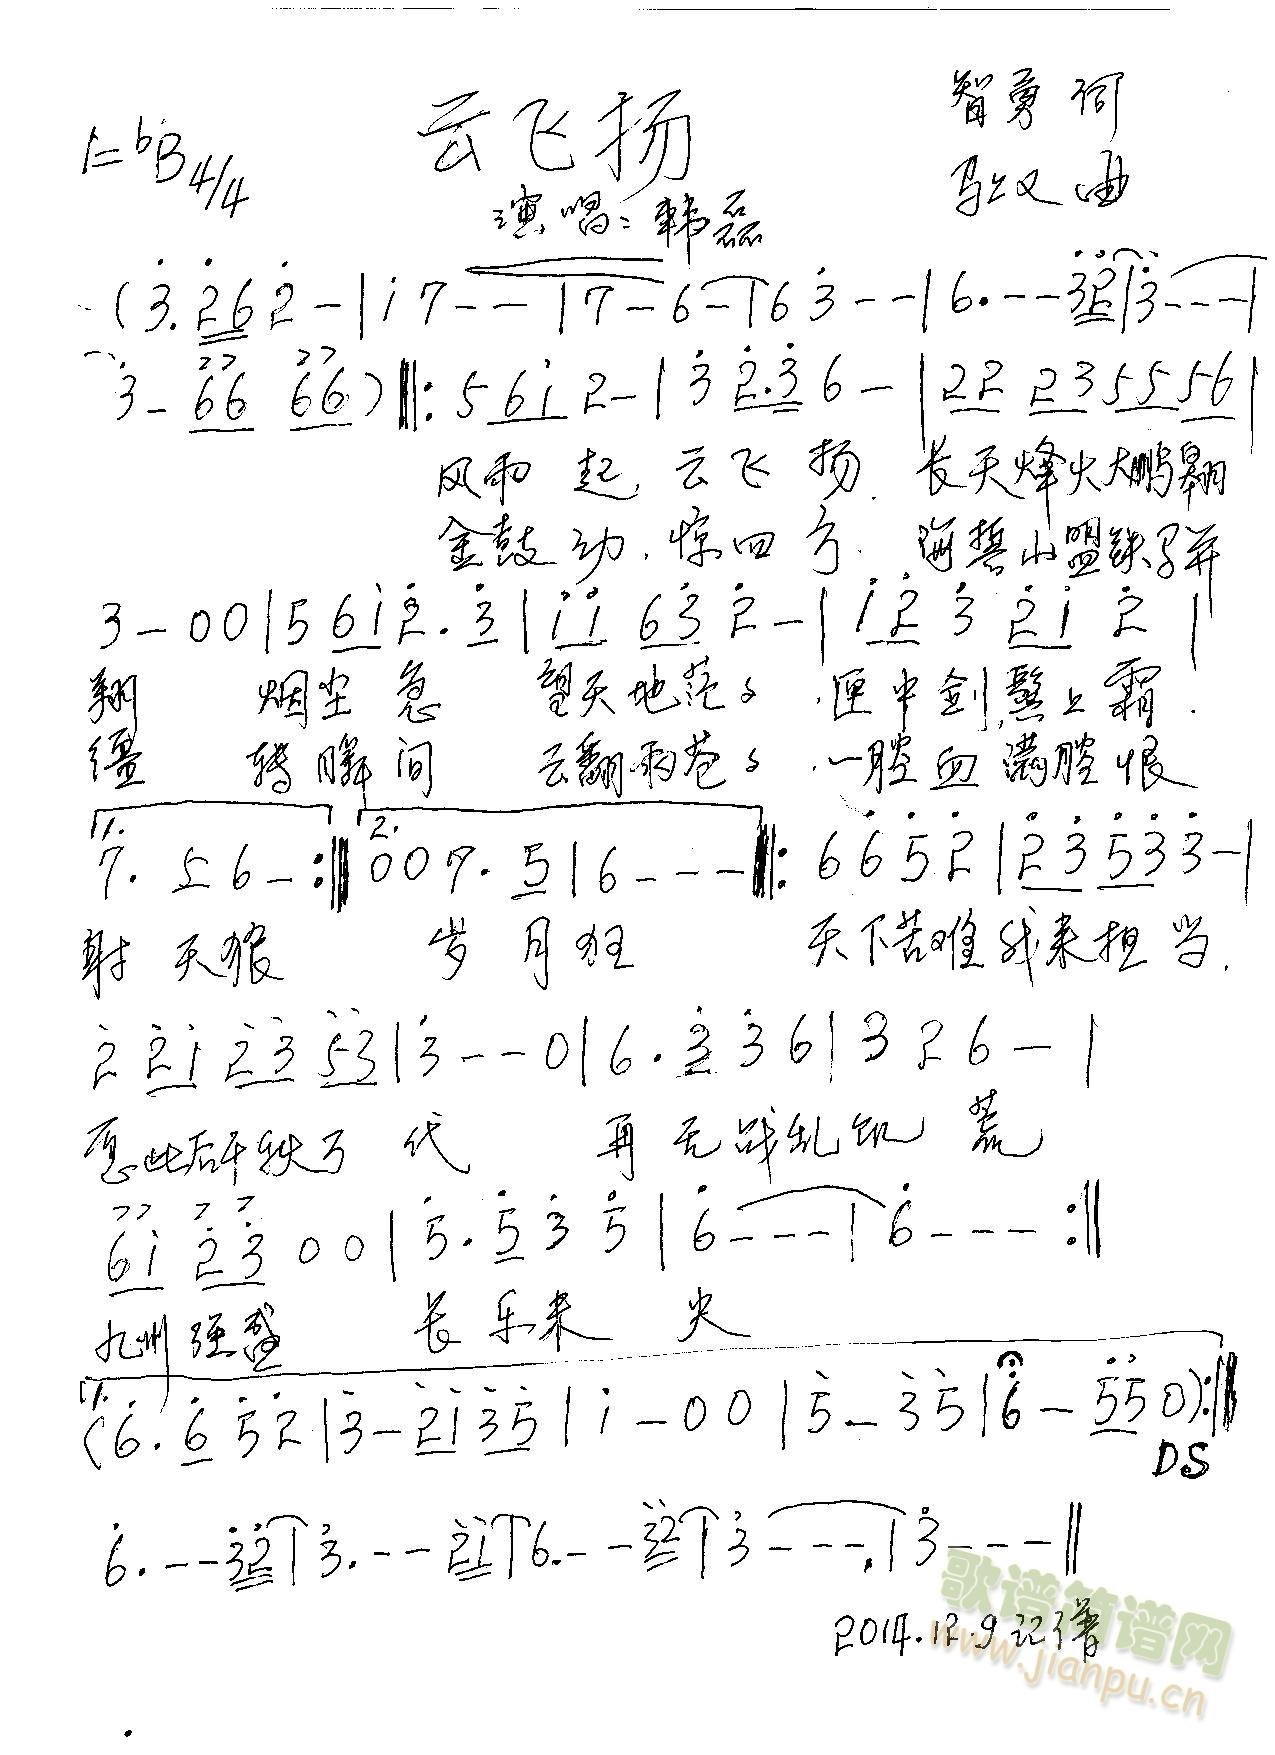 云飞扬
智勇 词
1=bB 4/4
马上又 曲
演唱:韩磊
(3.2 6 2 - | i 7 - - | 7 - 6 - | 6 3 - - | 6. - - 32 | 3 - - - |
3 - 66 66) ‖: 5 6i 2 - | 3 2.3 6 - | 22 23 55 56 |
风雨 起, 云飞 扬. 长天烽火大鹏翱
金鼓 动, 惊四 方. 海誓山盟铁马并
3 - 0 0 | 5 6i 2. 3 | ii 63 2 - | i2 3 2i 2 |
翔 烟尘 急 望天地茫々 ,匣中剑,鬓上霜.
缰 转瞬 间 云翻雨苍々 ,一腔血满腔恨
1. 7. 5 6 - :‖ 2. 0 0 7. 5 | 6 - - - ‖: 6 6 5 2 | 23 53 3 - |
射 天狼 岁 月 狂 天下苦难我来担当.
2 2i 23 53 | 3 - - 0 | 6. 3 3 6 | 3 2 6 - |
愿此后千秩万 代 再 无战乱饥 荒
6i 23 0 0 | 5. 5 3 5 | 6 - - - | 6 - - - :‖
九州强盛 长 乐未 央
1. (6. 6 5 2 | 3 - 2i 35 | i - 0 0 | 5 - 3 5 | 6 - 55 0) :‖
DS
6. - - 32 | 3. - - 2i | 6. - - 32 | 3 - - - , | 3 - - - ‖
2014.12.9记谱
歌谱简谱网
www.jianpu.cn